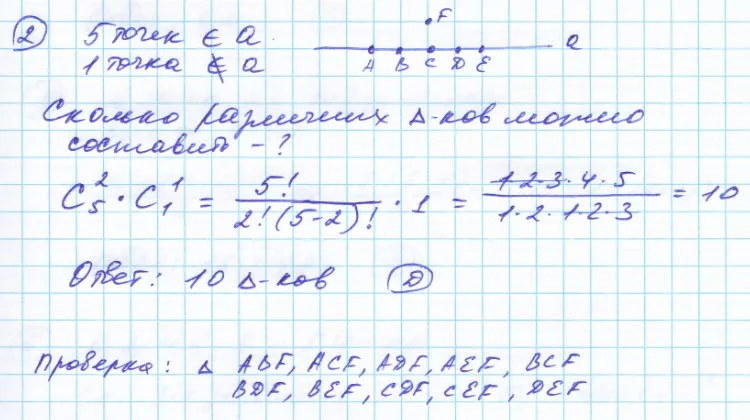 2 5 точек ∈ a. F
1 точка ∉ a A B C D E a
Сколько различных Δ-ков можно
составить - ?
C₅² · C₁¹ = 5! / 2!(5-2)! · 1 = 1·2·3·4·5 / 1·2·1·2·3 = 10
Ответ: 10 Δ-ков D
Проверка: Δ ABF, ACF, ADF, AEF, BCF
BDF, BEF, CDF, CEF, DEF